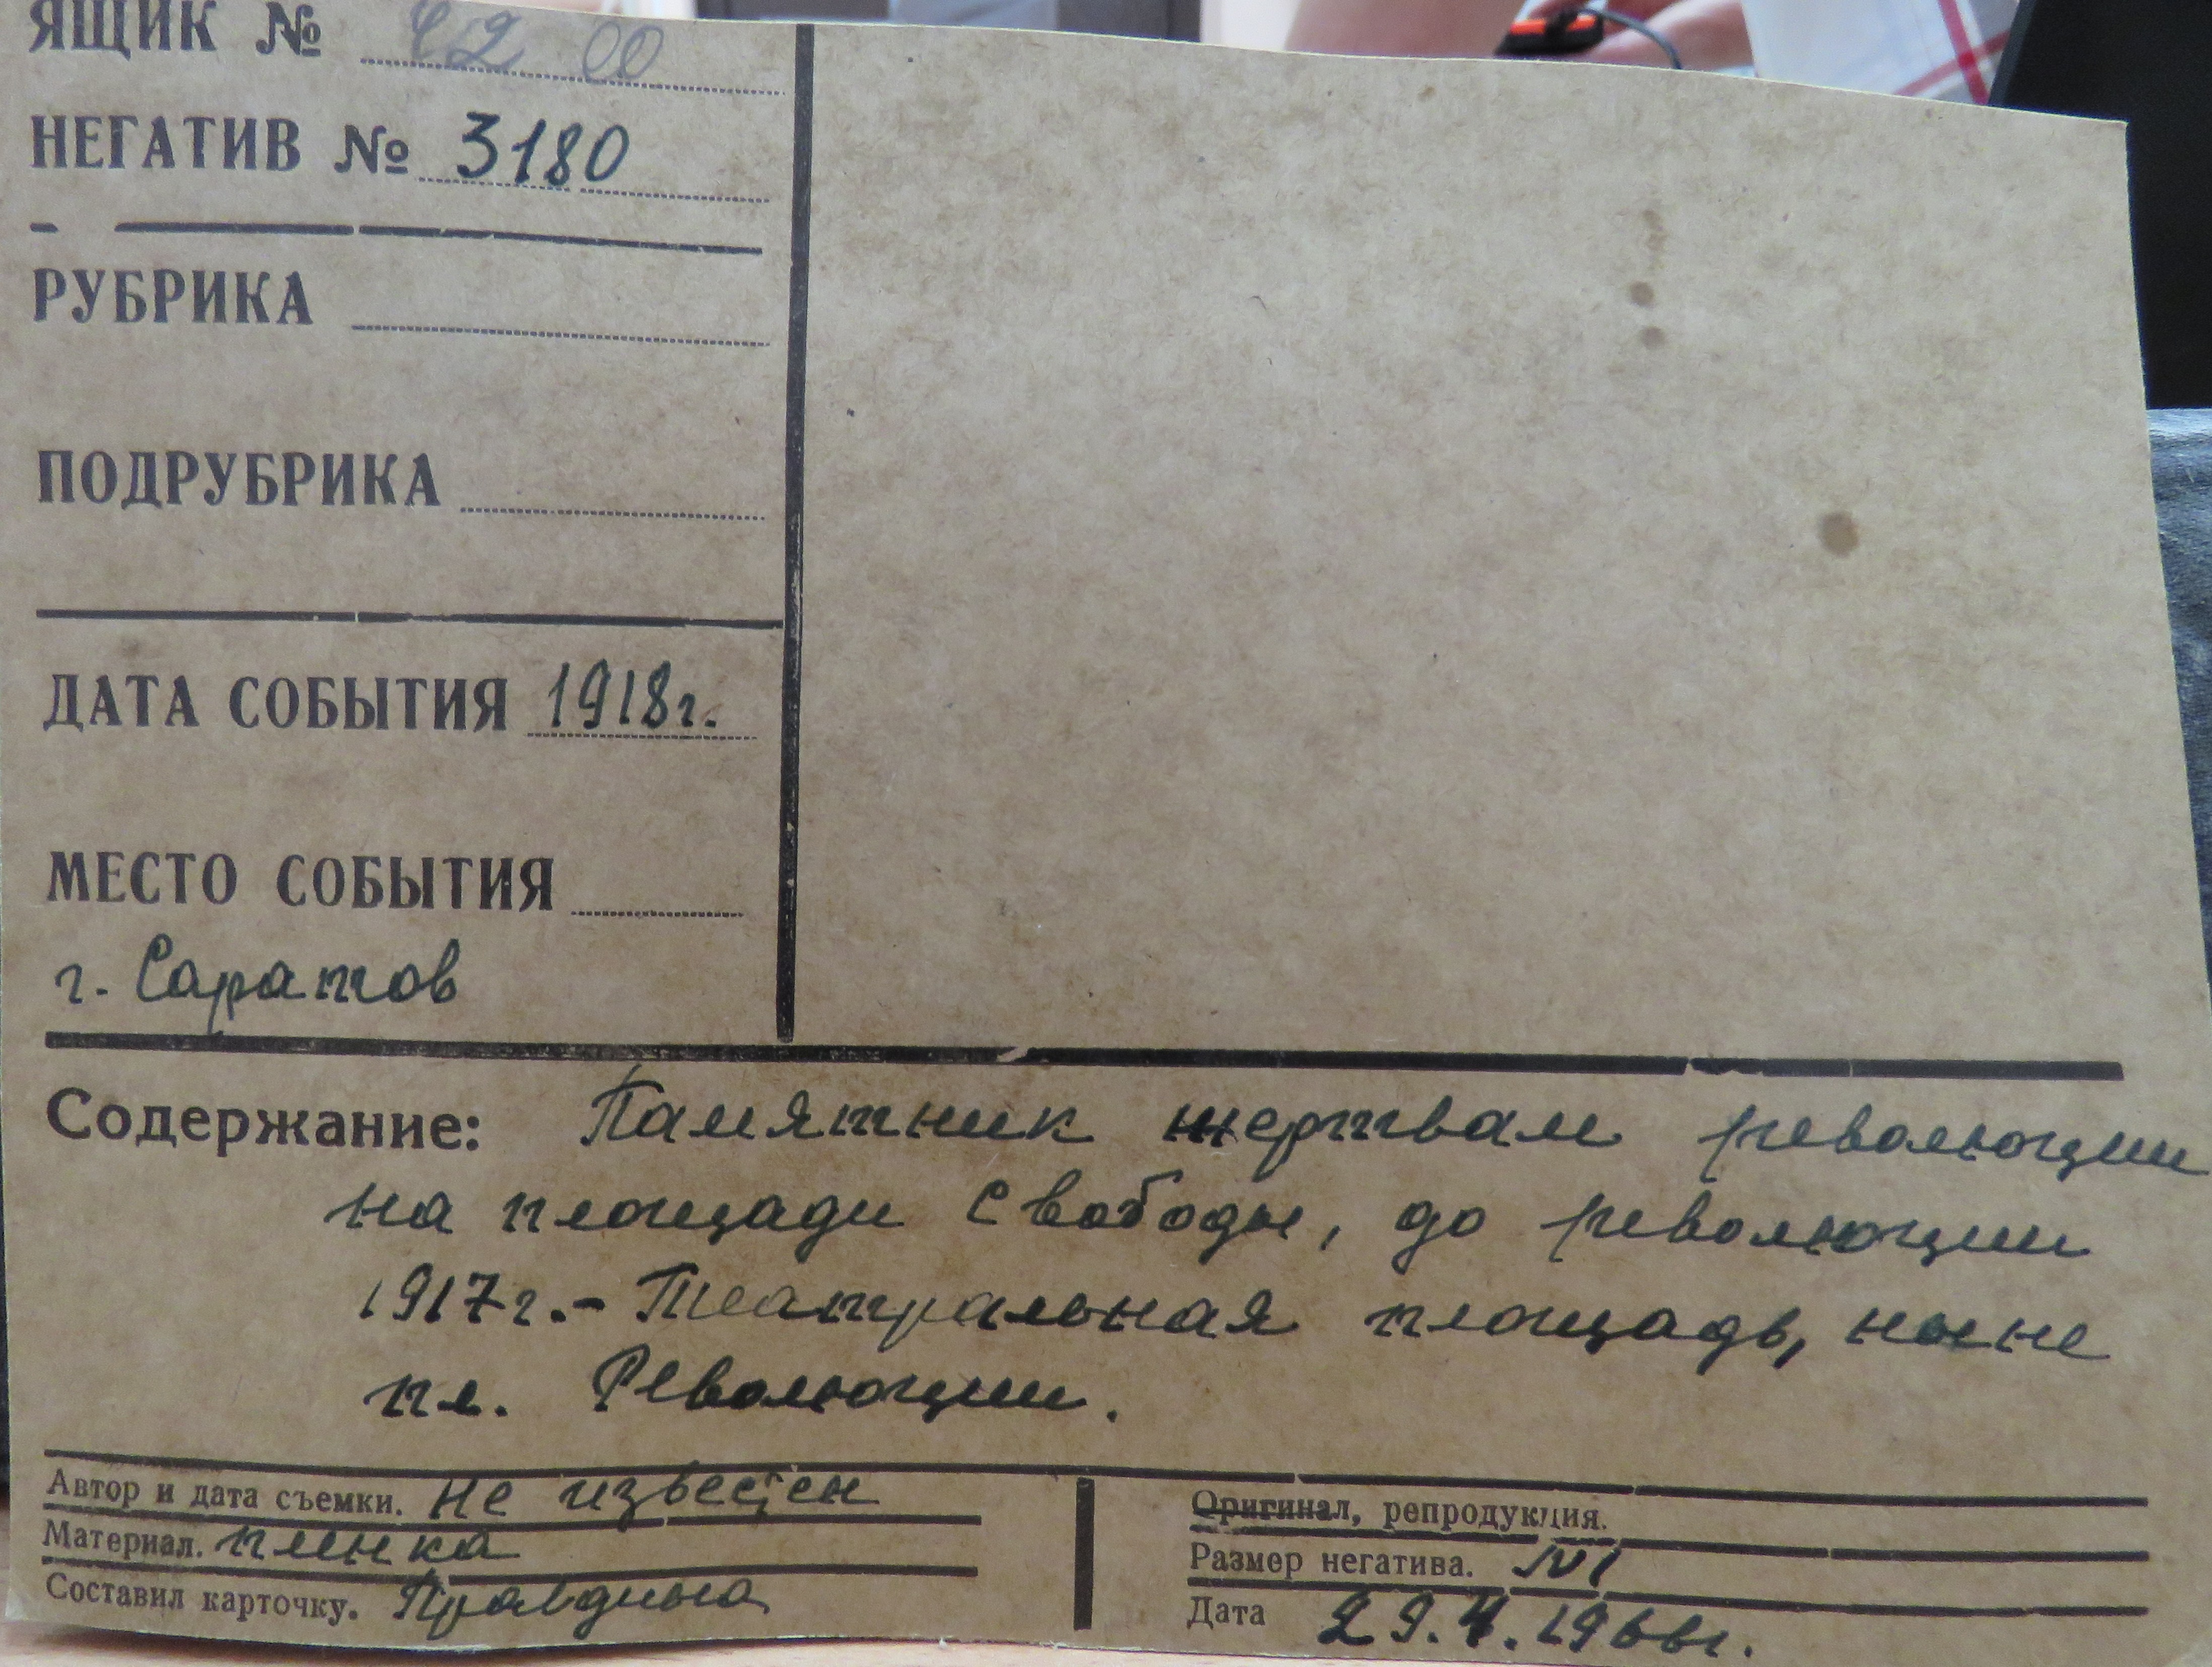 ЯЩИК №
НЕГАТИВ № 3180
РУБРИКА
ПОДРУБРИКА
ДАТА СОБЫТИЯ 1918г.
МЕСТО СОБЫТИЯ
г. Саратов
Содержание: Памятник жертвам революции
на площади Свободы, до революции
1917г.- Театральная площадь, ныне
пл. Революции.
Автор и дата съемки. Не известен
Материал. пленка
Составил карточку. Правдина
Оригинал, репродукция.
Размер негатива.
Дата 29.4.1966г.